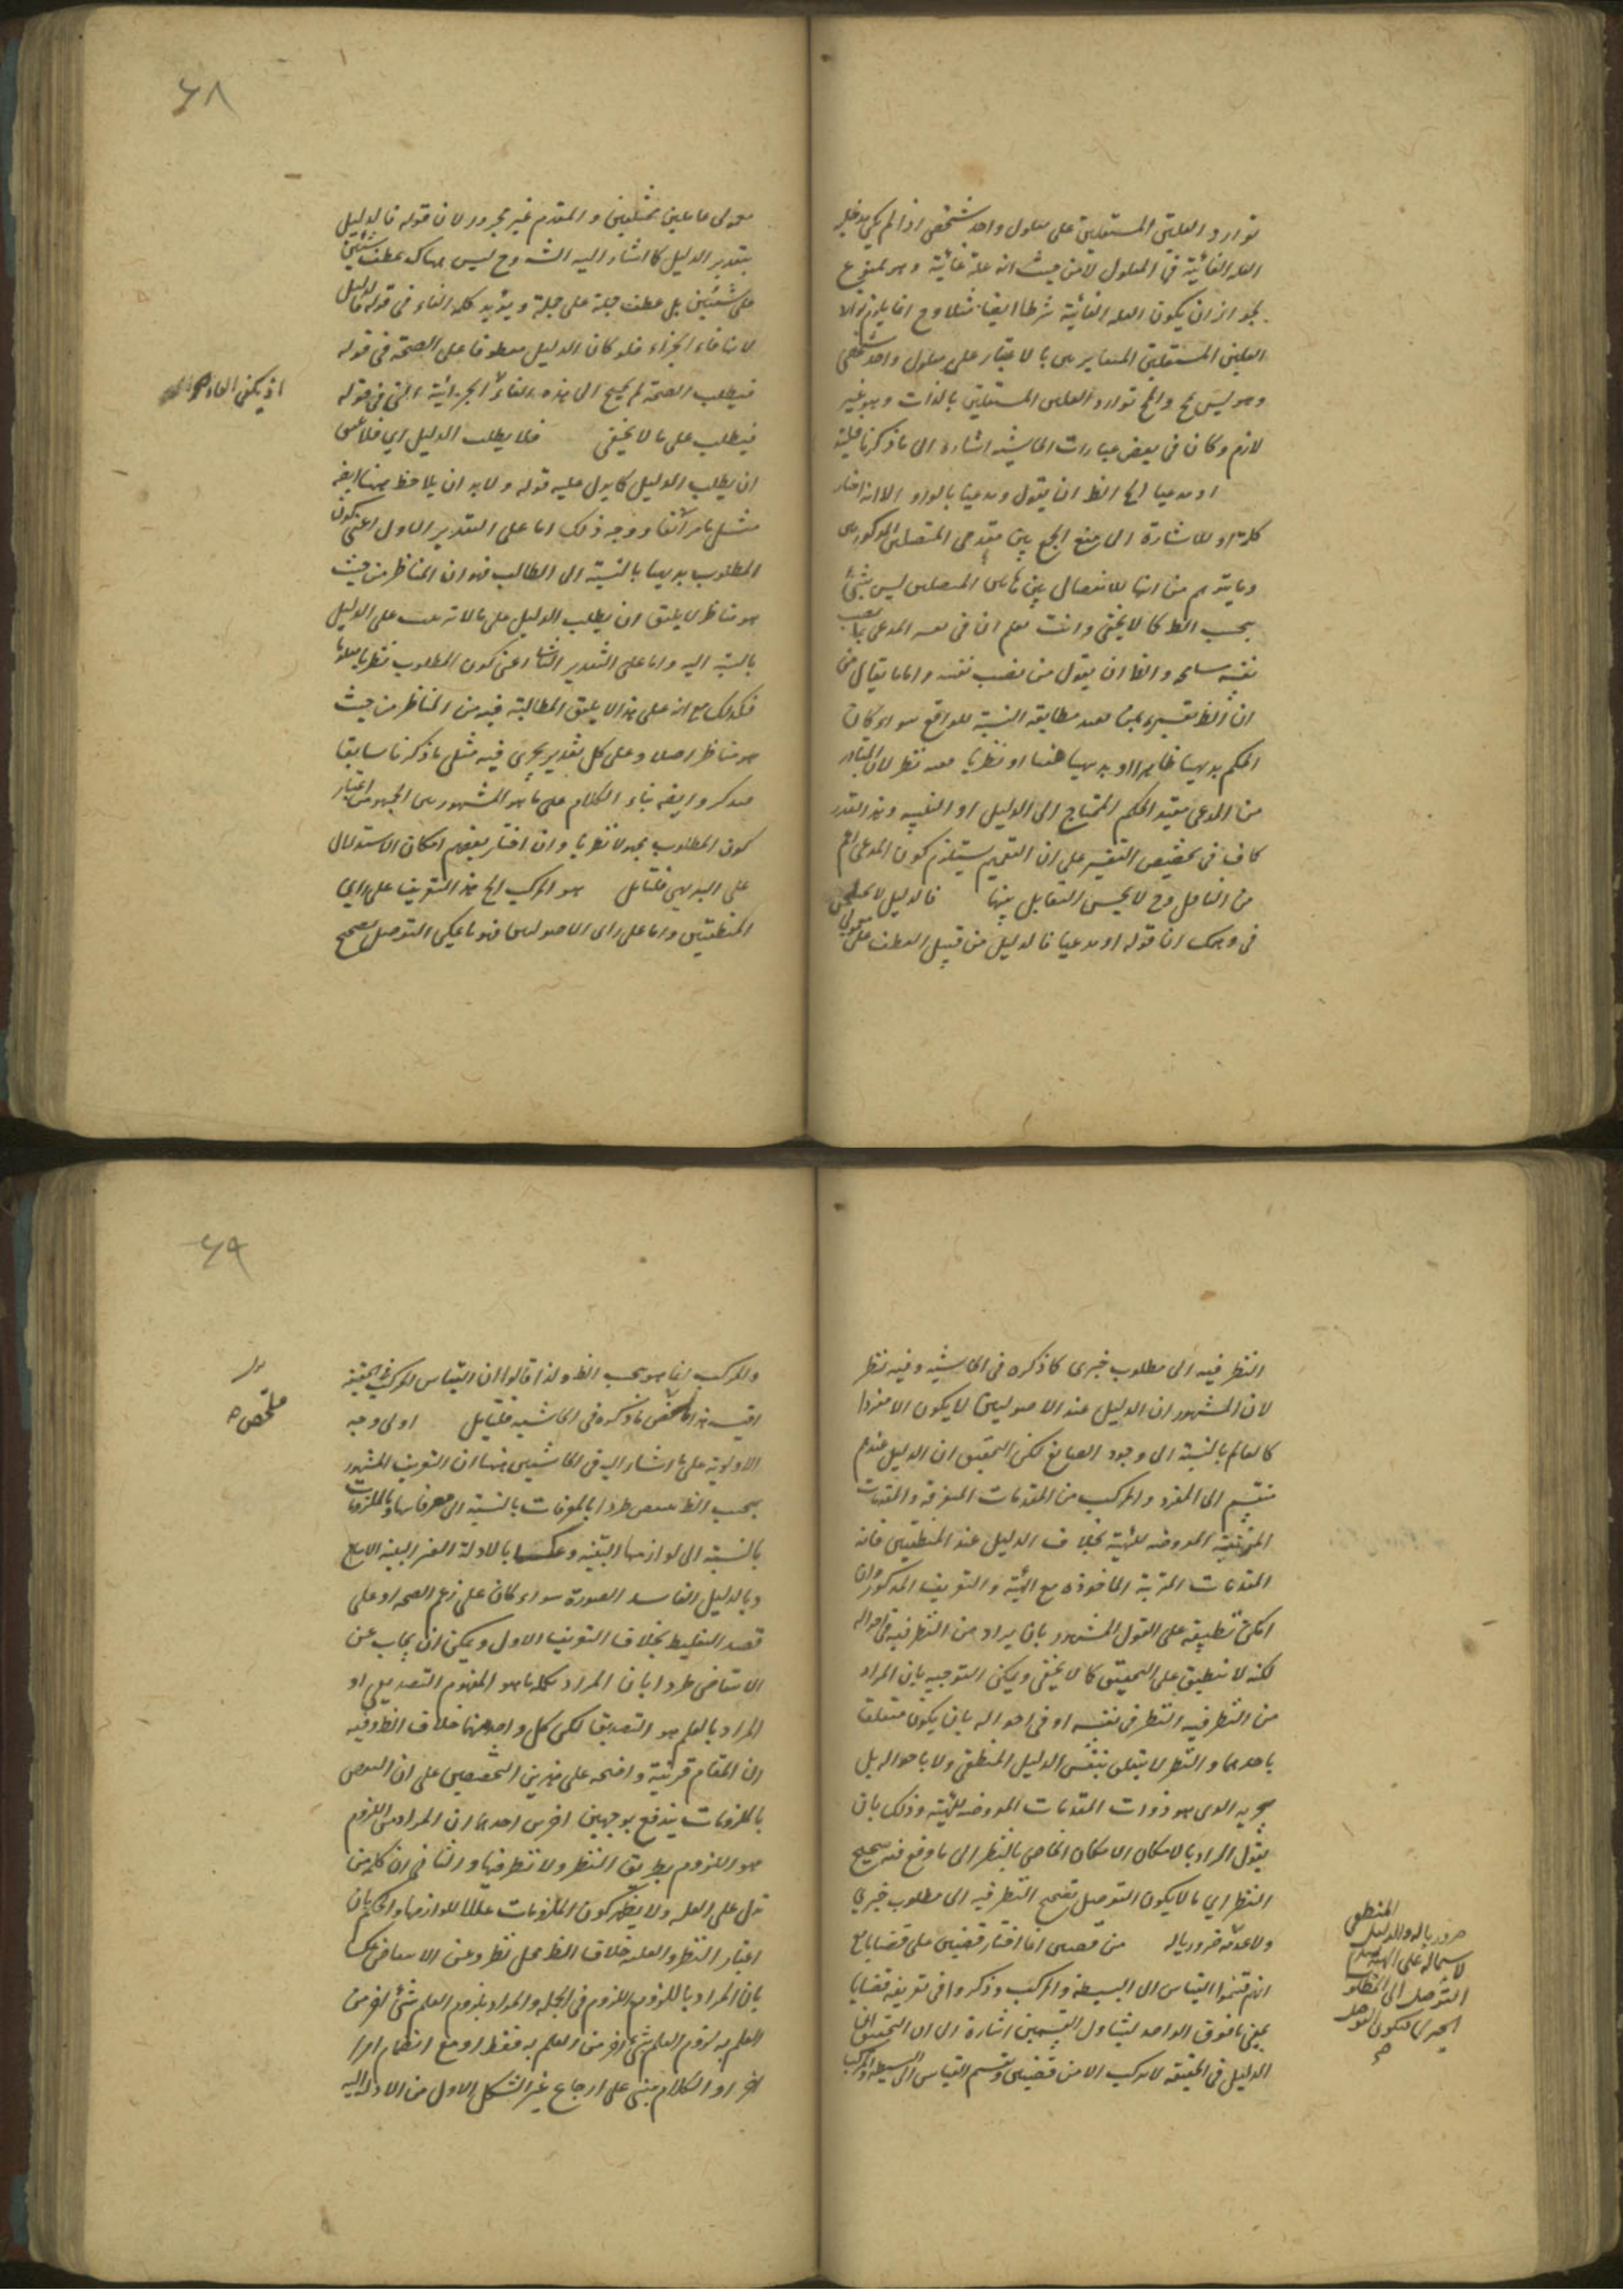 توارد العلتين المستقلتين على معلول واحد شخصى اذا لم يكن مدخلية
العلة الغائية فى المعلول لا من حيث انه علة غائية وهو ممنوع
لجواز ان يكون العلة الغائية شرطا ايضا مثلا وح انما يلزم توارد
العلتين المستقلتين المتغايرتين بالاعتبار على معلول واحد شخصى
وهو ليس مح والمح توارد العلتين المستقلتين بالذات وهو غير
لازم وكان فى بعض عبارات الحاشية اشارة الى ما ذكرنا
او مدعيا الخ الظ ان يقول ومدعيا بالواو الا انه اختار
كلمة او للاشارة الى منع الجمع بين مقدمى المتصلتين المذكورتين
وما يتوهم من انها للانفصال بين المتصلتين ليس بشئ
بحسب الظ كما لا يخفى وانت تعلم ان فى المدعى
نفسه والظ ان يقول من نصب نفسه واما ما يقال من
ان الظ تفسيره بمن يفيد مطابقة النسبة للواقع سواء كان
الحكم بديهيا ظاهرا او بديهيا خفيا او نظريا ففيه نظر لان المتبادر
من المدعى مفيد الحكم المحتاج الى الدليل او التنبيه وهذا القدر
كاف فى تخصيص التفسير على ان التعميم يستلزم كون المدعى اعم
من الناقل وح لا يحسن التقابل بينهما فالدليل
فى وهمك ان قوله او مدعيا فالدليل من قبيل العطف على معمولى
٦٨
معمولى عاملين مختلفين والمقدم غير مجرور لان قوله فالدليل
بتقدير الدليل كما اشار اليه الش وح ليس هناك عطف شيئين
على شيئين بل عطف جملة على جملة ويؤيده كلمة الفاء فى قوله فالدليل
لانها فاء الجزاء فلو كان الدليل معطوفا على الصحة فى قوله
فيطلب الصحة لم يحتج الى هذه الفاء الجزائية التى فى قوله
فيطلب على ما لا يخفى فلا يطلب الدليل اى فلا ينبغى
ان يطلب الدليل كما يدل عليه قوله ولا بد ان يلاحظ ههنا ايضا
مثل ما مر آنفا ووجه ذلك اما على التقدير الاول اعنى كون
المطلوب بديهيا بالنسبة الى الطالب فهو ان المناظر من حيث
هو مناظر لا يليق ان يطلب الدليل على ما لا يتوقف على الدليل
بالنسبة اليه واما على التقدير الثانى اعنى كون المطلوب نظريا معلوما
فكذلك مع انه على هذا لا يليق المطالبة فيه من المناظر من حيث
هو مناظر اصلا وعلى كل تقدير يجرى فيه مثل ما ذكرنا سابقا
فتذكر وايضا بناء الكلام على ما هو المشهور بين الجمهور من اعتبار
كون المطلوب مجهولا نظريا وان اختار بعضهم امكان الاستدلال
على البديهى فتأمل هو المركب الخ هذا التعريف على راى
المنطقيين واما على راى الاصوليين فهو ما يمكن التوصل بصحيح
النظر فيه الى مطلوب خبرى كما ذكره فى الحاشية وفيه نظر
لان المشهور ان الدليل عند الاصوليين لا يكون الا مفردا
كالعالم بالنسبة الى وجود الصانع لكن التحقيق ان الدليل عندهم
منقسم الى المفرد والمركب من المقدمات المتفرقة والمقدمات
المرتبة المعروضة للهيئة بخلاف الدليل عند المنطقيين فانه
المقدمات المرتبة الماخوذة مع الهيئة والتعريف المذكور وان
امكن تطبيقه على القول المشهور بان يراد من النظر فيه فى احواله
لكنه لا ينطبق على التحقيق كما لا يخفى ويمكن التوجيه بان المراد
من النظر فيه النظر فى نفسه او فى احواله بان يكون متعلقا
باحدهما والنظر لا يتعلق بنفس الدليل المنطقى ولا باحواله بل
بجزئه الذى هو ذوات المقدمات المعروضة للهيئة وذلك بان
يقول المراد بالامكان الامكان الخاص بالنظر الى ما وقع فيه صحيح
النظر اى ما لا يكون التوصل بصحيح النظر فيه الى مطلوب خبرى
ولا عدمه ضروريا له من قضيتين انما اختار قضيتين على قضايا مع
انهم قسموا القياس الى البسيطة والمركب وذكروا فى تعريفه قضايا
بمعنى ما فوق الواحد ليتناول القسمين اشارة الى ان التحقيق ان
الدليل فى الحقيقة لا يتركب الا من قضيتين وتقسيم القياس الى البسيط والمركب
المنطقى
ضروريا له والدليل
لاشتماله على الهيئة
التوصل الى المطلوب
٦٩
والمركب انما هو بحسب الظ ولذا قالوا ان القياس المركب فى الحقيقة
اقيسة هذا ملخص ما ذكره فى الحاشية فتأمل اولى وجه
الاولوية على ما اشار اليه فى الحاشيتين منها ان التعريف المشهور
بحسب الظ منتقض طردا بالمعرفات بالنسبة الى معرفاتها وبالملزومات
بالنسبة الى لوازمها البينة وعكسا بالادلة الغير البينة الانتاج
وبالدليل الفاسد الصورة سواء كان على زعم الصحة او على
قصد التغليط بخلاف التعريف الاول ويمكن ان يجاب عن
الانتقاض طردا بان المراد بكلمة ما هو المفهوم التصديقى او
المراد بالعلم هو التصديق لكن كل واحد منهما خلاف الظ وفيه
ان المقام قرينة واضحة على هذين التخصيصين على ان النقض
بالملزومات يندفع بوجهين اخرين احدهما ان المراد من اللزوم
هو اللزوم بطريق النظر ولا نظر فيها والثانى ان كلمة من
تدل على العلية ولا يظهر كون الملزومات عللا للوازمها والحكم بان
اعتبار النظر والعلية خلاف الظ محل نظر وعن الانتقاض عكسا
بان المراد باللزوم اللزوم فى الجملة والمراد بلزوم العلم بشئ اخر من
العلم به لزوم العلم بشئ اخر من العلم به فقط او مع انضمام امر
اخر او الكلام مبنى على ارجاع غير الشكل الاول من الادلة اليه
ملخص